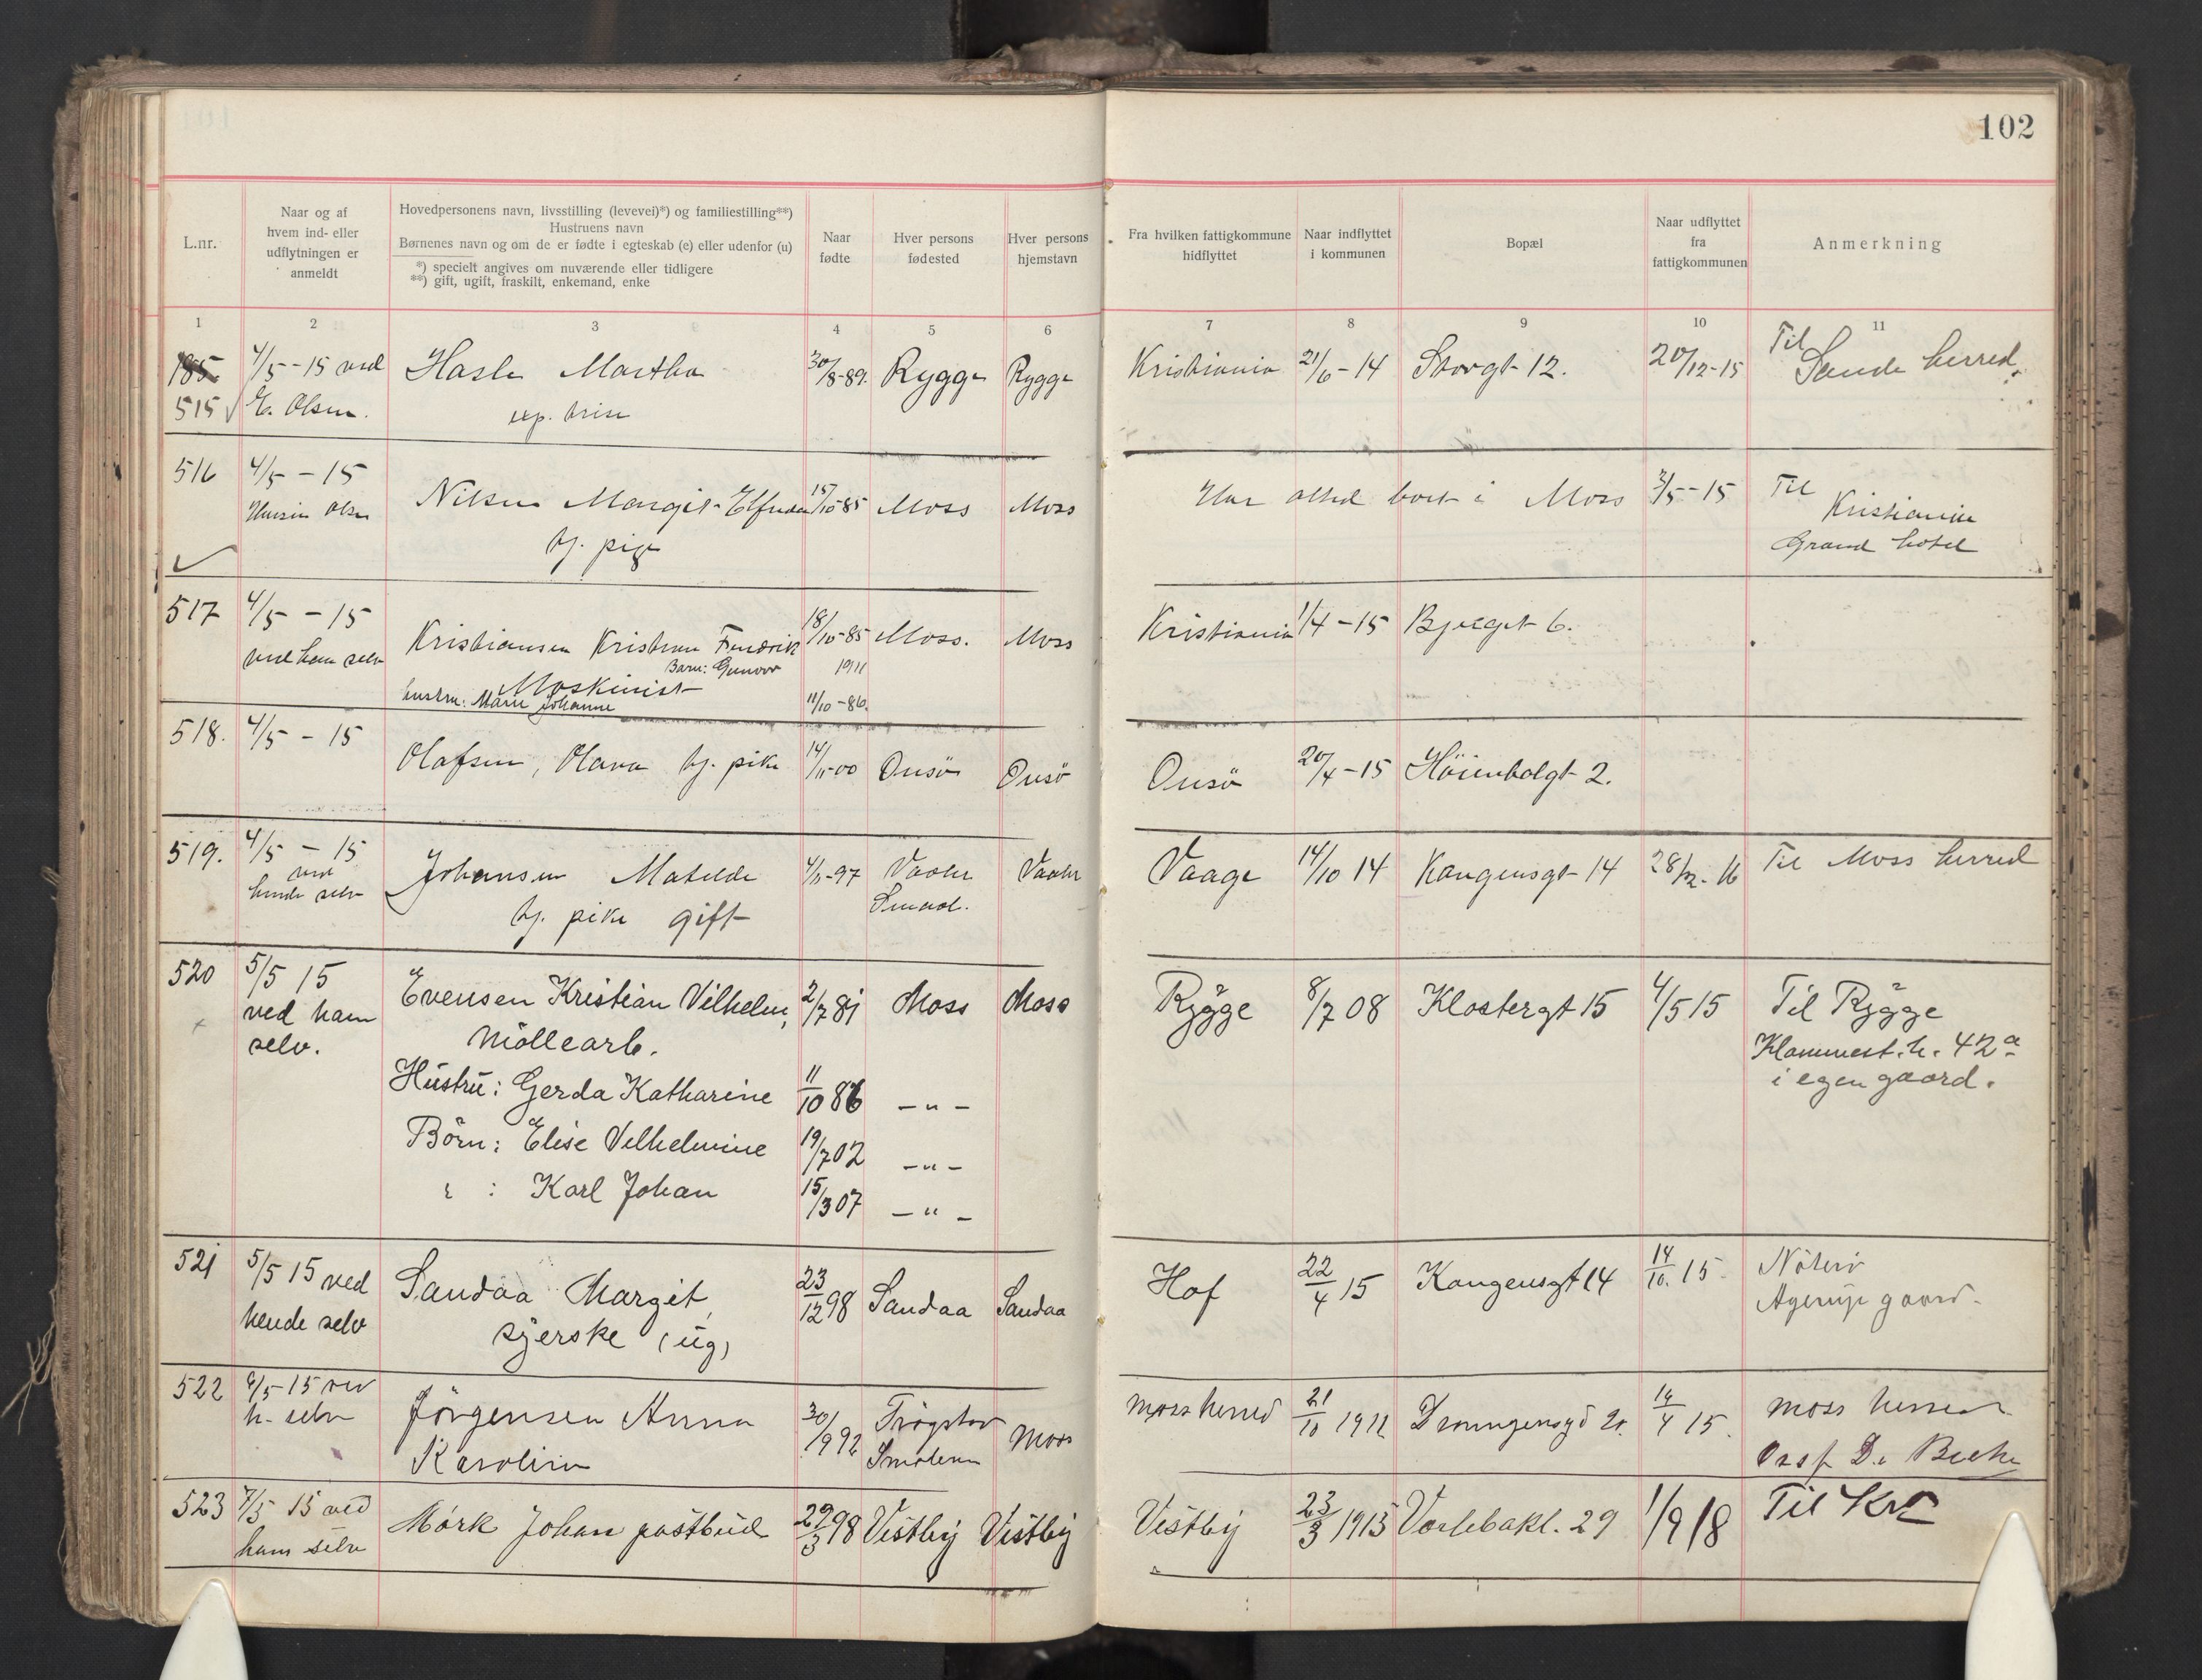 102
L.nr.
Naar og af
hvem ind- eller
udflytningen er
anmeldt
Hovedpersonens navn, livsstilling (levevei)*) og familiestilling**)
Hustruens navn
Børnenes navn og om de er fødte i egteskab (e) eller udenfor (u)
*) specielt angives om nuværende eller tidligere
**) gift, ugift, fraskilt, enkemand, enke
Naar
fødte
Hver persons
fødested
Hver persons
hjemstavn
Fra hvilken fattigkommune
hidflyttet
Naar indflyttet
i kommunen
Bopæl
Naar udflyttet
fra
fattigkommunen
Anmerkning
1 2 3 4 5 6 7 8 9 10 11
185 4/5-15 ved Hasle Martha 30/8-89. Rygge Rygge Kristiania 21/6-14 Storgt 12. 20/12-15 Til Sande herred.
515 E. Olsen. exp. trise
516 4/5-15 Nilsen Margit Elfrida 15/10-85 Moss Moss Har altid bort i Moss 3/5-15 Til
Olsen Kristiania
tj. pige Grand hotel
517 4/5-15 Kristiansen Kristian Fredrik 18/10-85 Moss. Moss Kristiania 1/4-15 Bjergt 6.
ved ham selv Barn: Gunvor 1911
Maskinist
hustru: Marie Johanne 11/10-86.
518. 4/5-15 Olafsen, Olava tj. pike 14/11-00 Onsö Onsö Onsö 20/4-15 Höienholgt 2.
519. 4/5-15 Johansen Matilde 4/5-97 Vaaler Vaaler Vaage 14/10 14 Kongensgt 14 28/12-16 Til Moss herred
ved
hende selv tj. pike gift Smaal.
520 5/5 15 Evensen Kristian Vilhelm, 2/7 81 Moss Moss Rygge 8/7 08 Klostergt 15 4/5 15 Til Rygge
ved ham Möllearb. 42 a
selv. i egen gaard.
Hustru: Gerda Katharine 11/10 86 – " –
Börn: Elise Vilhelmine 19/7 02 – " –
" : Karl Johan 15/3 07 – " –
521 5/5 15 ved Sandaa Margit, 23/12 98 Sandaa Sandaa Hof 22/4 15 Kongensgt 14 14/10. 15. Nöterö
hende selv syerske (ug) Agerup gaard.
522 6/5-15 ved Jörgensen Anna 30/9 92 Trögstad Moss Moss herred 21/10 1912 Dronningensgd 20. 14/4 15. Moss herred
h. selv Karoline Smålenene
523 7/5 15 ved Mörk Johan postbud 29/3 98 Vestby Vestby Vestby 23/3 1915 Varlebakk. 29 1/9 18 Til Kra
ham selv